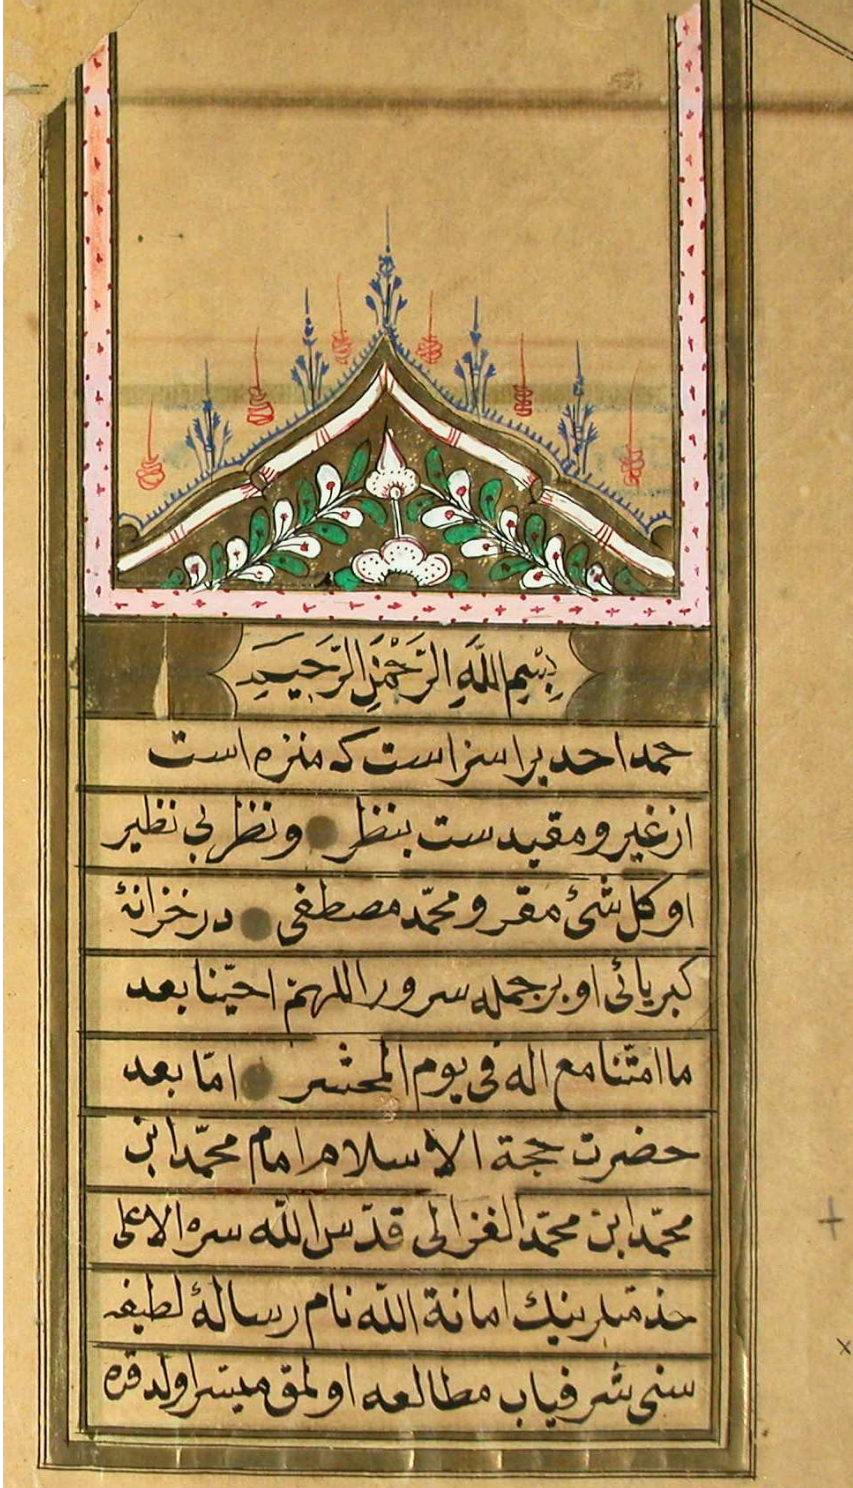 بِسْمِ اللّٰهِ الرَّحْمٰنِ الرَّحِيمِ
حمد احد برا سزاست که منزه است
از غیر و مقیدست بنظر و نظر بی نظیر
او کل شئ مقر و محمّد مصطفی در خزانهٔ
کبریائی او بر جمله سرور اللهمّ احیّنا بعد
ما امتّنا مع اله فی یوم المحشر امّا بعد
حضرت حجة الاسلام امام محمّد ابن
محمّد ابن محمّد الغزالی قدّس اللّه سره الاعلی
امانة اللّه نام رسالهٔ لطیفه
سنی شرفیاب مطالعه اولمق میسّر اولدقره